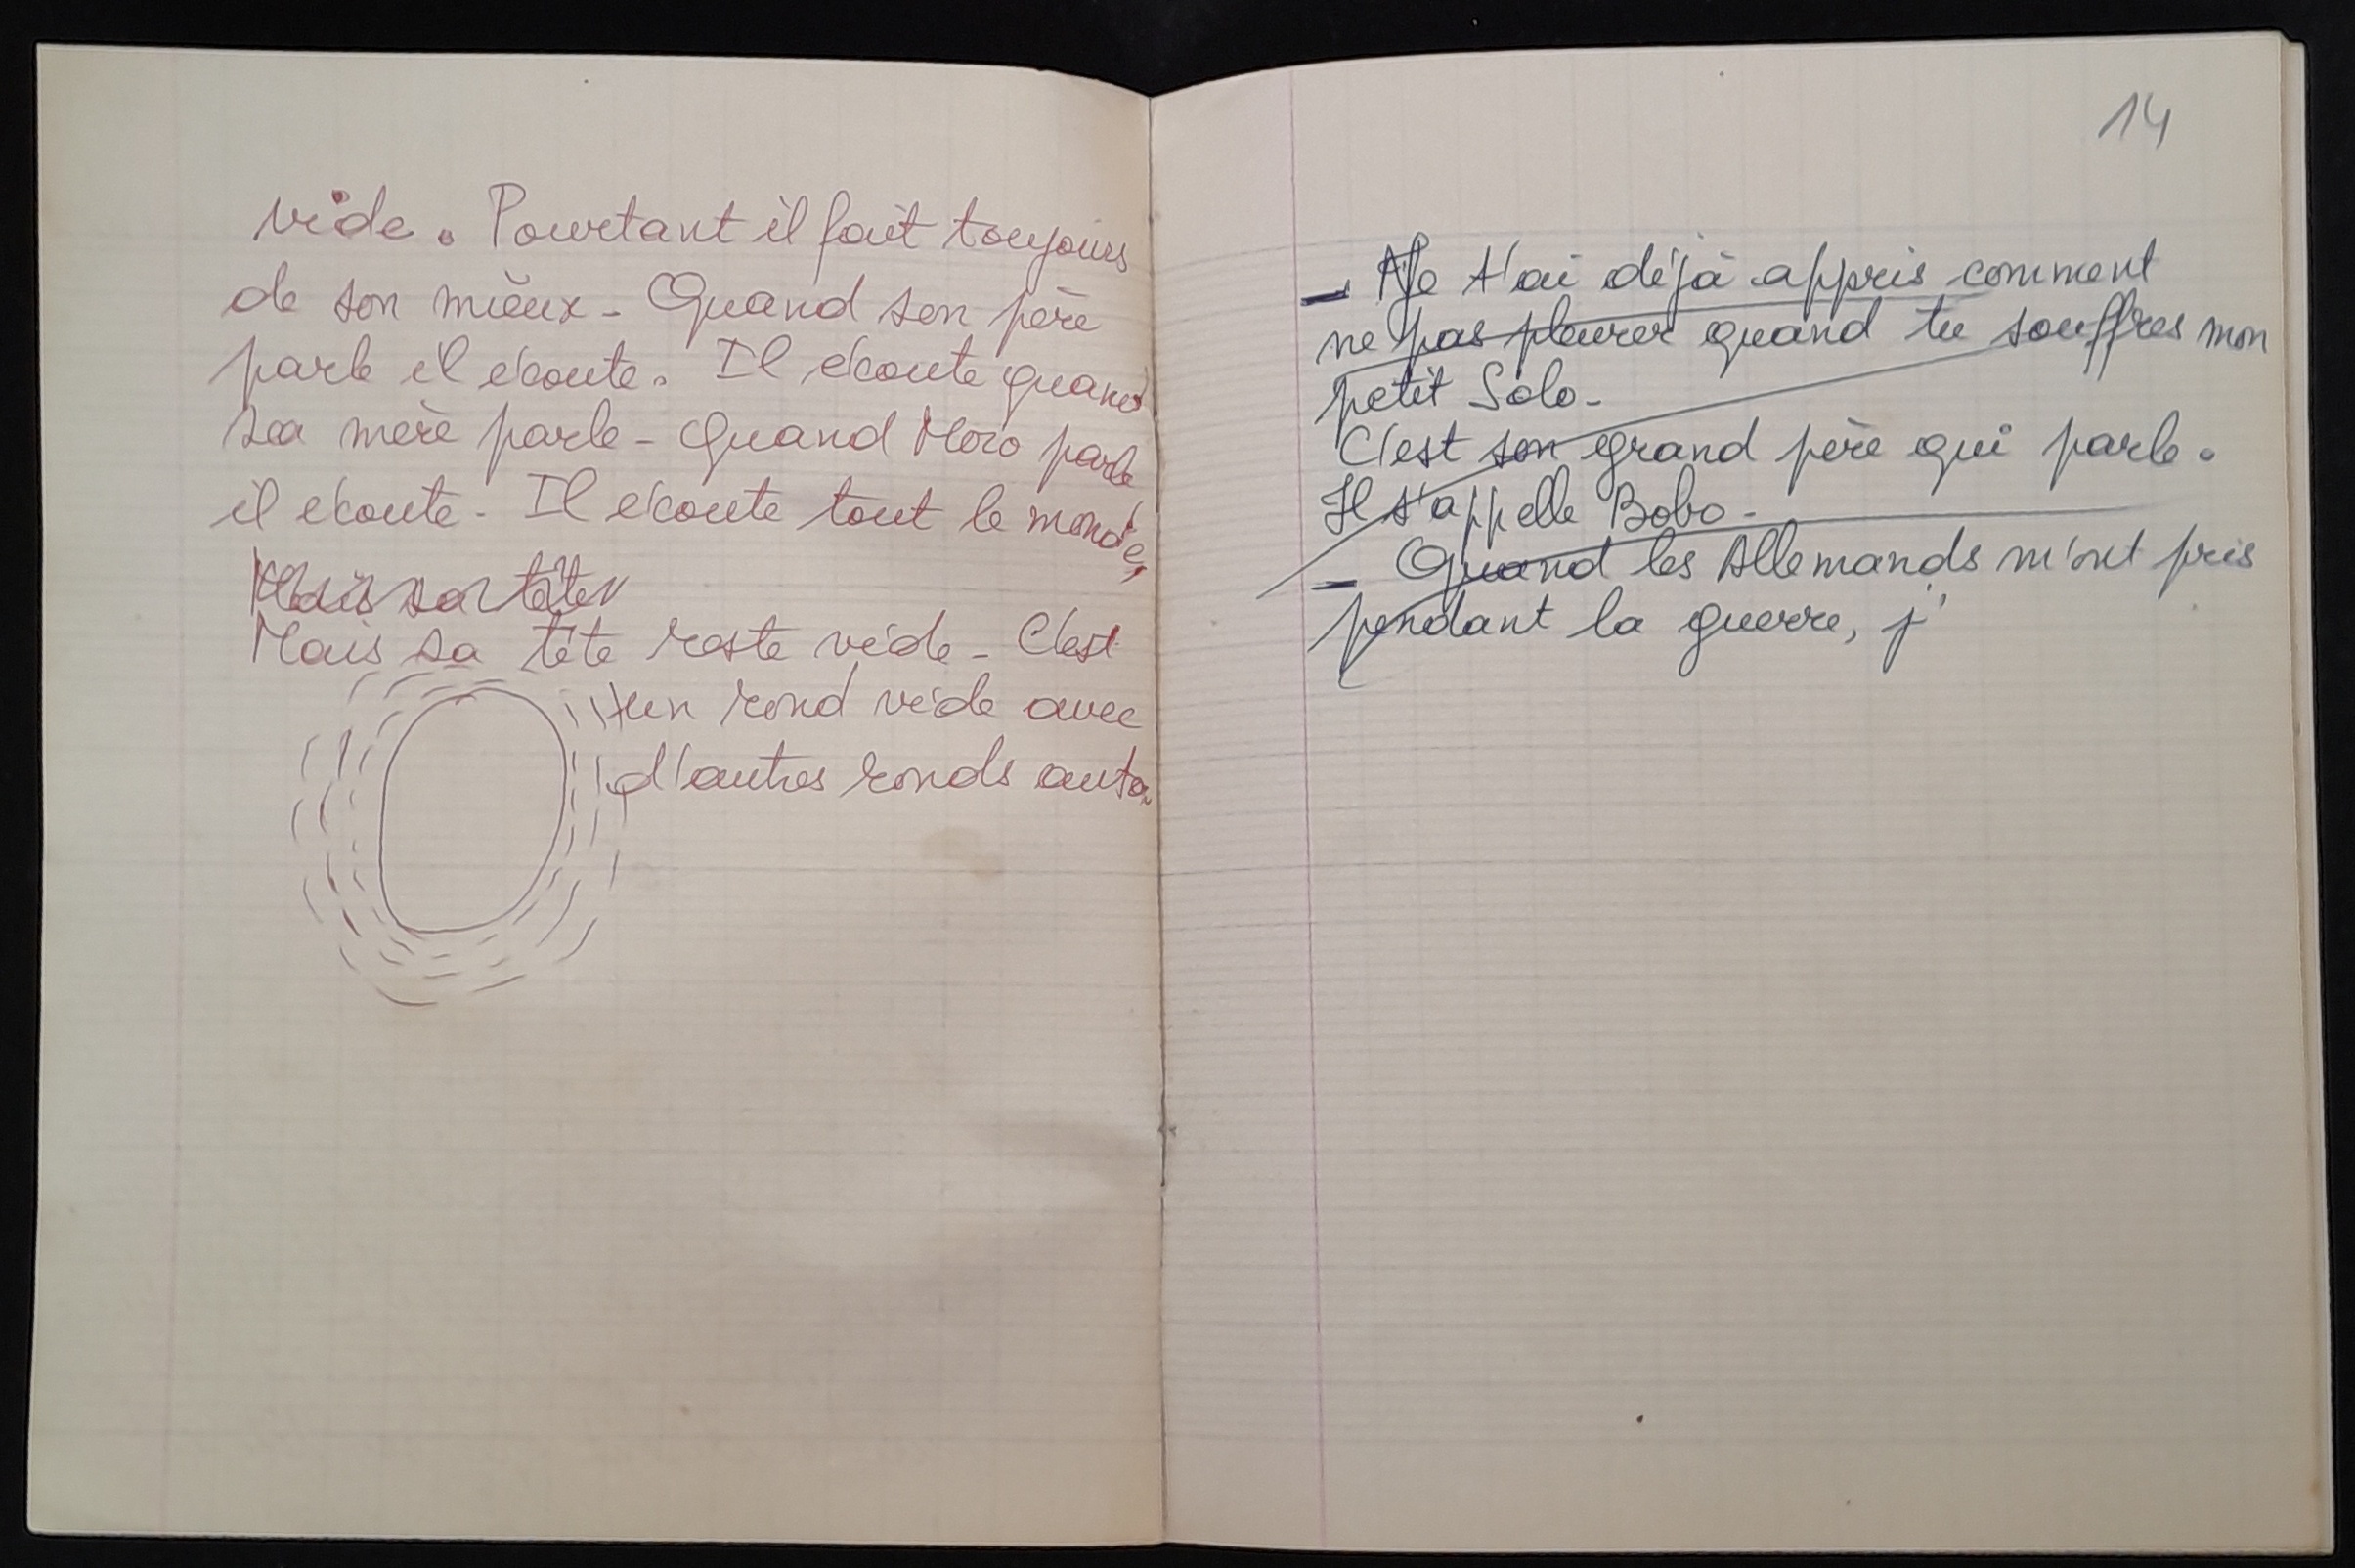 vide. Pourtant il fait toujours
de son mieux - Quand son père
parle il écoute. Il écoute quand
sa mère parle - Quand Moro parle
il écoute - Il écoute tout le monde,
Mais sa tête
Mais sa tête reste vide - C'est
un rond vide avec
d'autres ronds auto
14
- Je t'ai déjà appris comment
ne pas pleurer quand tu souffres mon
petit Solo -
C'est son grand père qui parle.
Il s'appelle Bobo -
- Quand les Allemands m'ont pris
pendant la guerre, j'